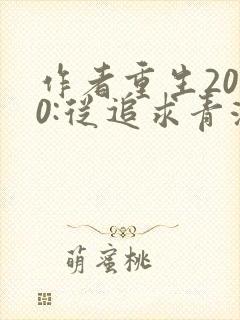 作者重生20
0:從追求青
萌蜜桃